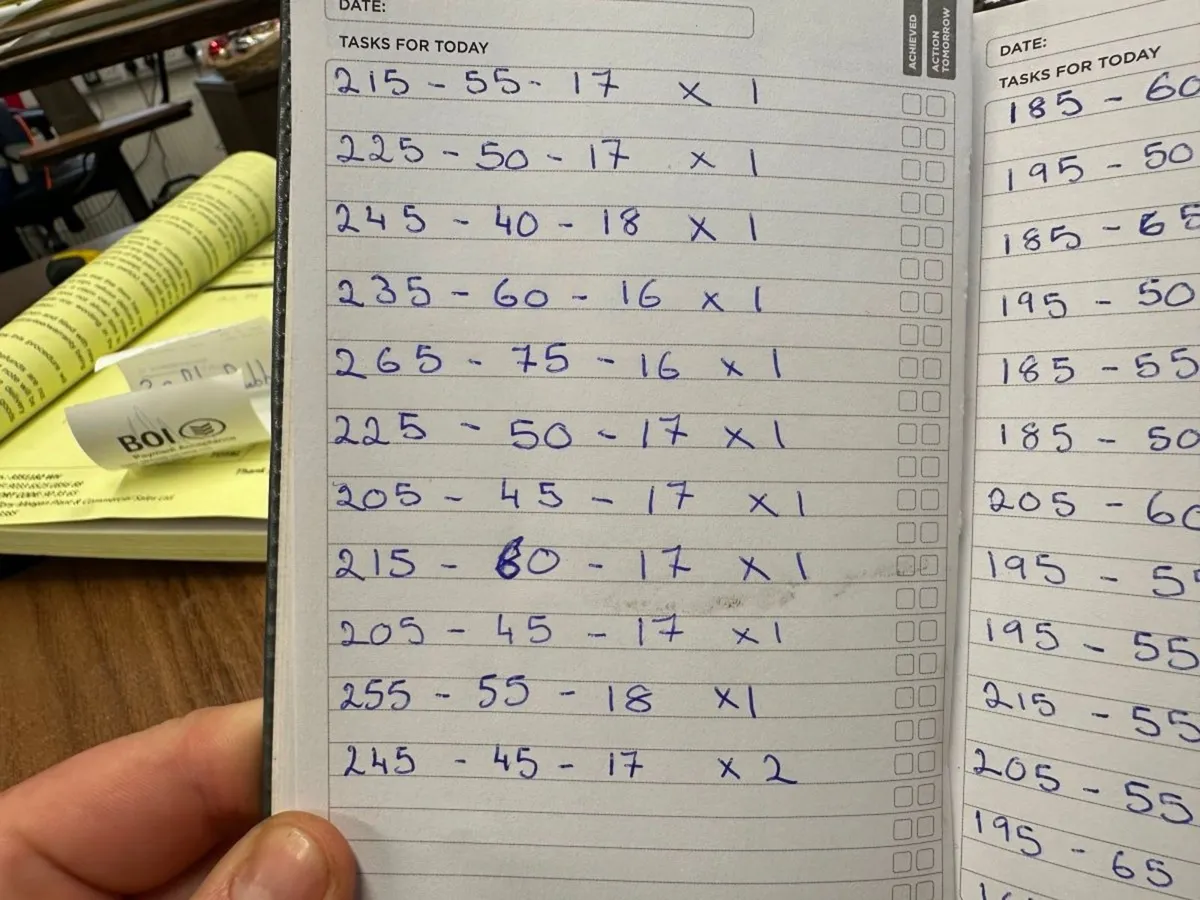 DATE:
TASKS FOR TODAY
ACHIEVED
ACTION TOMORROW
215 - 55 - 17 x 1
225 - 50 - 17 x 1
245 - 40 - 18 x 1
235 - 60 - 16 x 1
265 - 75 - 16 x 1
225 - 50 - 17 x 1
205 - 45 - 17 x 1
215 - 60 - 17 x 1
205 - 45 - 17 x 1
255 - 55 - 18 x 1
245 - 45 - 17 x 2
DATE:
TASKS FOR TODAY
185 - 60
195 - 50
185 - 65
195 - 50
185 - 55
185 - 50
205 - 60
195 - 55
195 - 55
215 - 55
205 - 55
195 - 65
BOI
Payment Acceptance